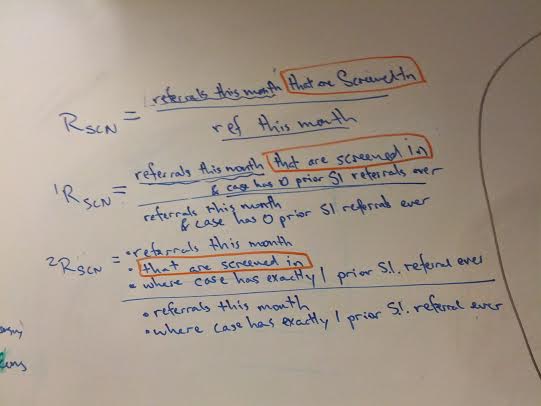 R_SCN = referrals this month that are Screened In
ref this month
¹R_SCN = referrals this month that are screened in
& case has 0 prior S.I. referrals ever
referrals this month
& case has 0 prior S.I referrals ever
²R_SCN = • referrals this month
• that are screened in
• where case has exactly 1 prior S.I. referral ever
• referrals this month
• where case has exactly 1 prior S.I. referral ever